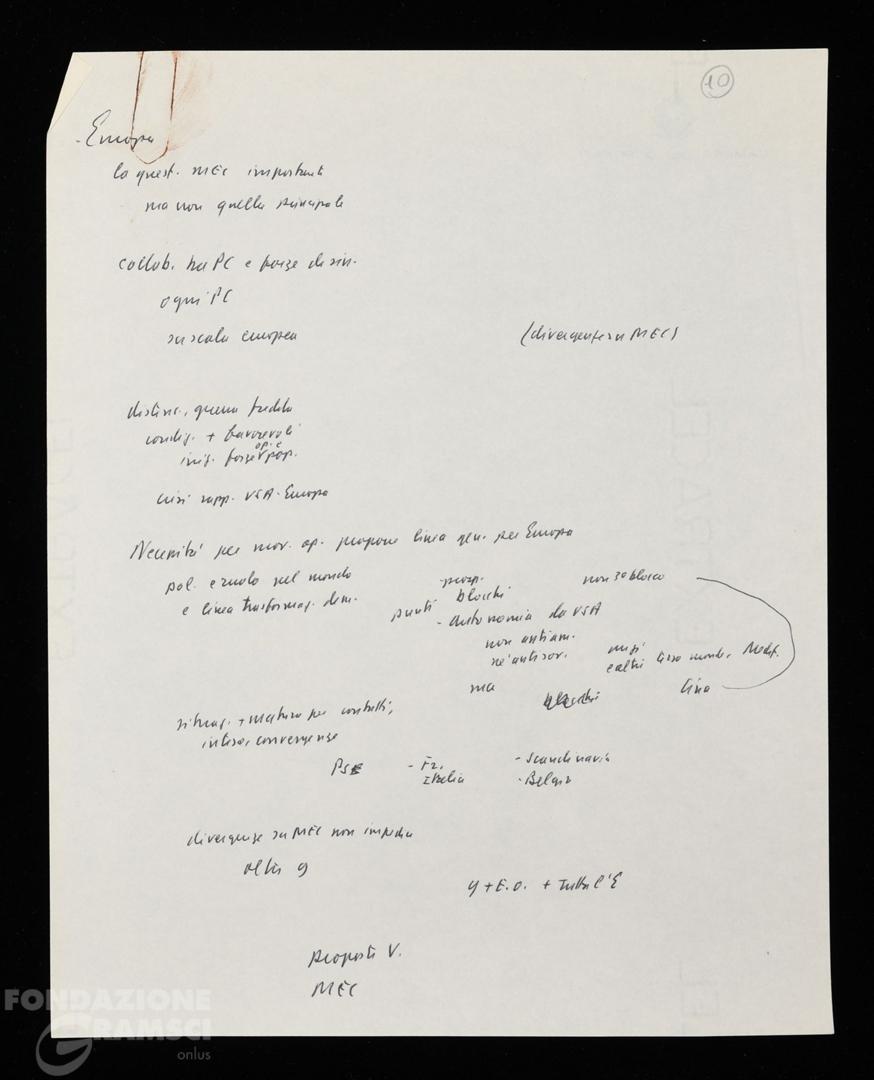 10
- Europa
la quest. MEC importante
ma non quella principale
collob. tra PC e forze di sin.
ogni PC
su scala europea
(divergenze su MEC)
distens., guerra fredda
condiz. + favorevoli
iniz. forze op. e pop.
crisi rapp. USA-Europa
Necessità per mov. op. proporre linea gen. per Europa
pol. e ruolo nel mondo
e linea trasformaz. dem.
punti
blocchi
non 3º blocco
- autonomia da USA
non antiam.
né antisov.
e altri terzo mondo, Medit.
ma
Cina
situaz. + matura per contatti,
intese, convergenze
PSE
- Fr.
Italia
- Scandinavia
- Belgio
divergenze su MEC non impedire
oltre 9
9 + E.O. + tutta l'E
proposte V.
MEC
FONDAZIONE
GRAMSCI
onlus